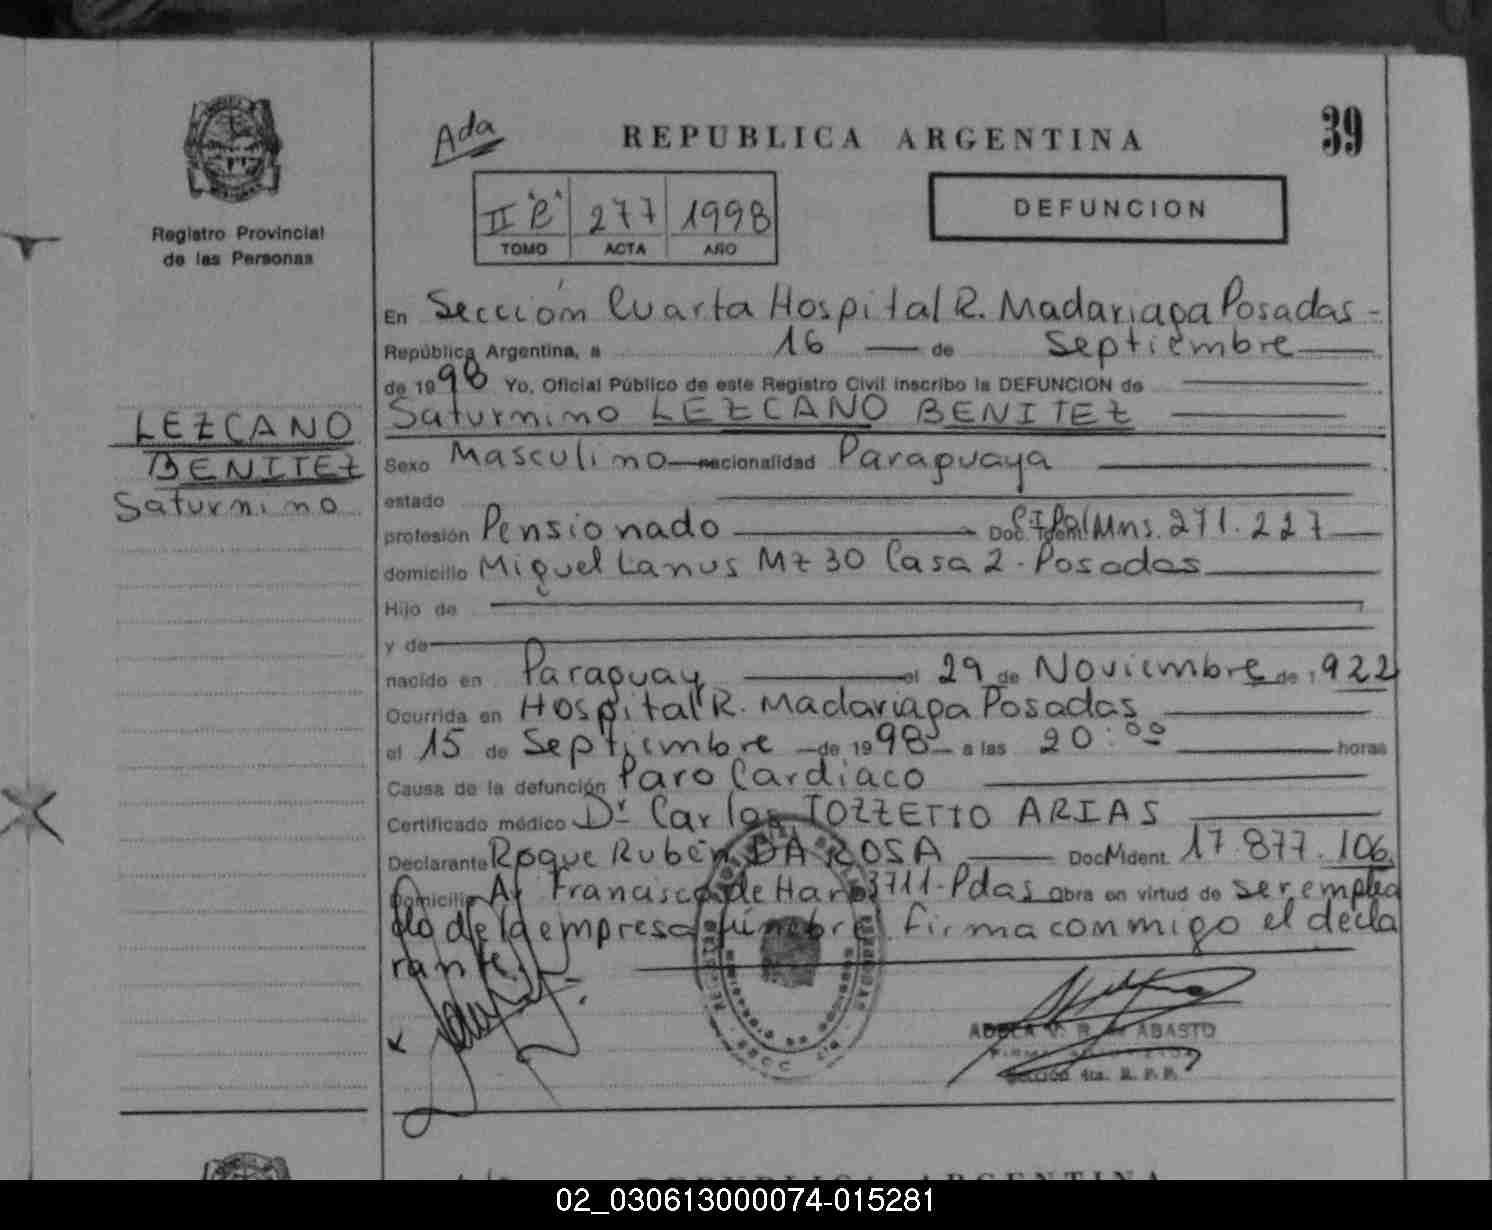 Ada
REPUBLICA ARGENTINA
39
Registro Provincial
de las Personas
II "B" 277 1998
TOMO ACTA AÑO
DEFUNCION
En Sección Cuarta Hospital R. Madariaga Posadas -
República Argentina, a 16 de Septiembre
de 1998 Yo, Oficial Público de este Registro Civil inscribo la DEFUNCION de
Saturnino LEZCANO BENITEZ
LEZCANO
BENITEZ
Saturnino
Sexo Masculino nacionalidad Paraguaya
estado
profesión Pensionado Doc. Ident. C.I.Pol Mns. 271.227
domicilio Miguel Lanus Mz 30 Casa 2 - Posadas
Hijo de
y de
nacido en Paraguay el 29 de Noviembre de 1922
Ocurrida en Hospital R. Madariaga Posadas
el 15 de Septiembre de 1998 a las 20:00 horas
Causa de la defunción Paro Cardiaco
Certificado médico Dr Carlos TOZZETTO ARIAS
Declarante Roque Rubén DA ROSA Doc. Ident. 17.877.106
Domicilio Av Francisco de Haro 3711-Pdas obra en virtud de ser emplea
do de la empresa fúnebre. firma conmigo el decla
rante.
ABASTO
Sección 4ta. R. P. P.
REPUBLICA ARGENTINA
02_030613000074-015281